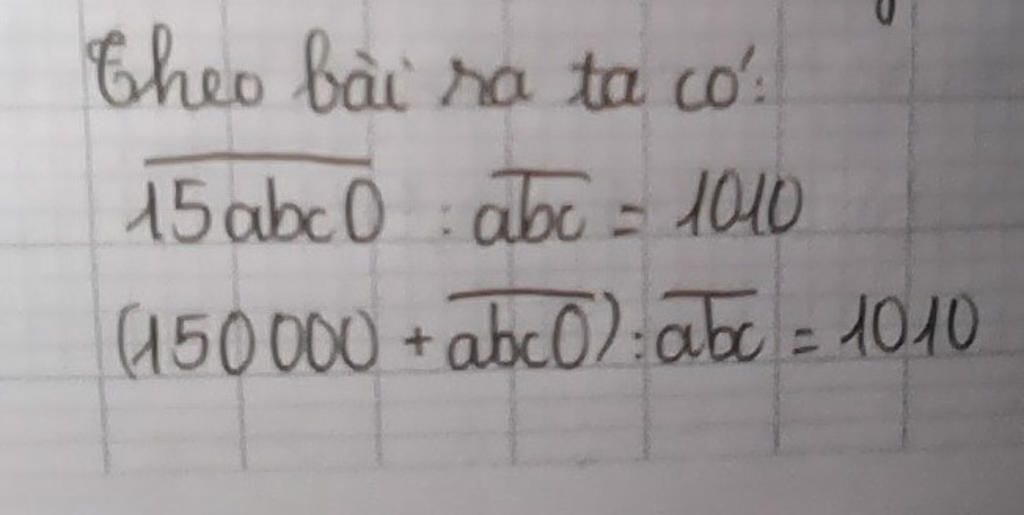 Theo bài ra ta có:
15abc0 : abc = 1010
(150000 + abc0) : abc = 1010